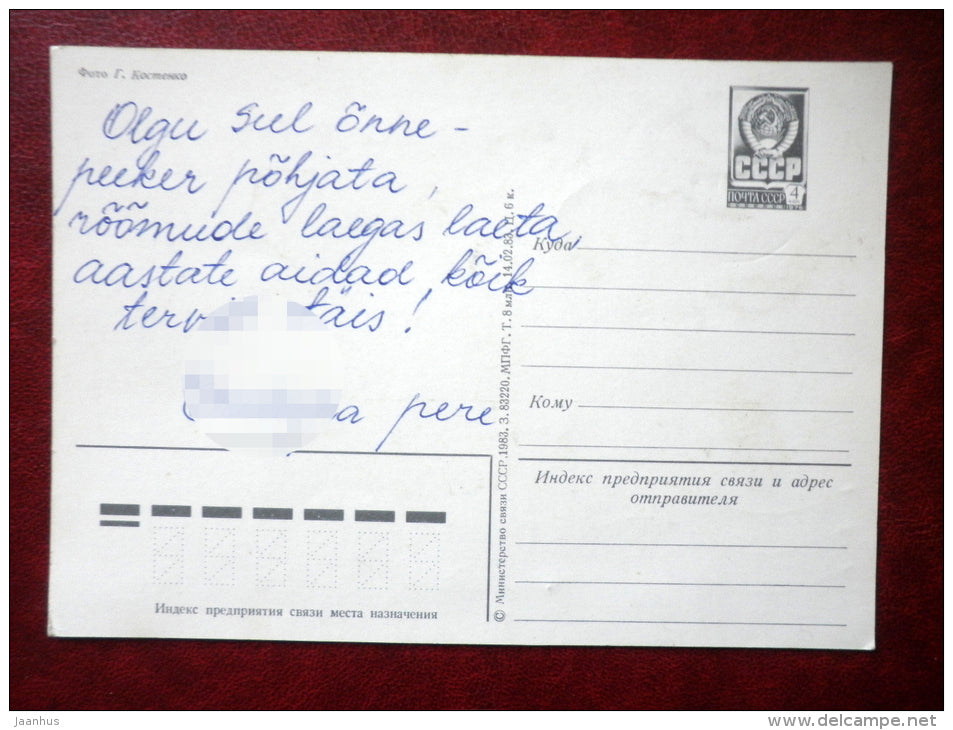 Фото Г. Костенко
Olgu Sul õnne-
peeker põhjata,
rõõmude laegas laeta,
aastate aidad kõik
täis!
pere
СССР
ПОЧТА СССР 4
Куда
Кому
Индекс предприятия связи и адрес
отправителя
Индекс предприятия связи места назначения
© Министерство связи СССР. 1983. З. 83220. МПФГ. Т. 8 млн. 14.02.83. Ц. 6 к.
jaanhus
www.delcampe.net